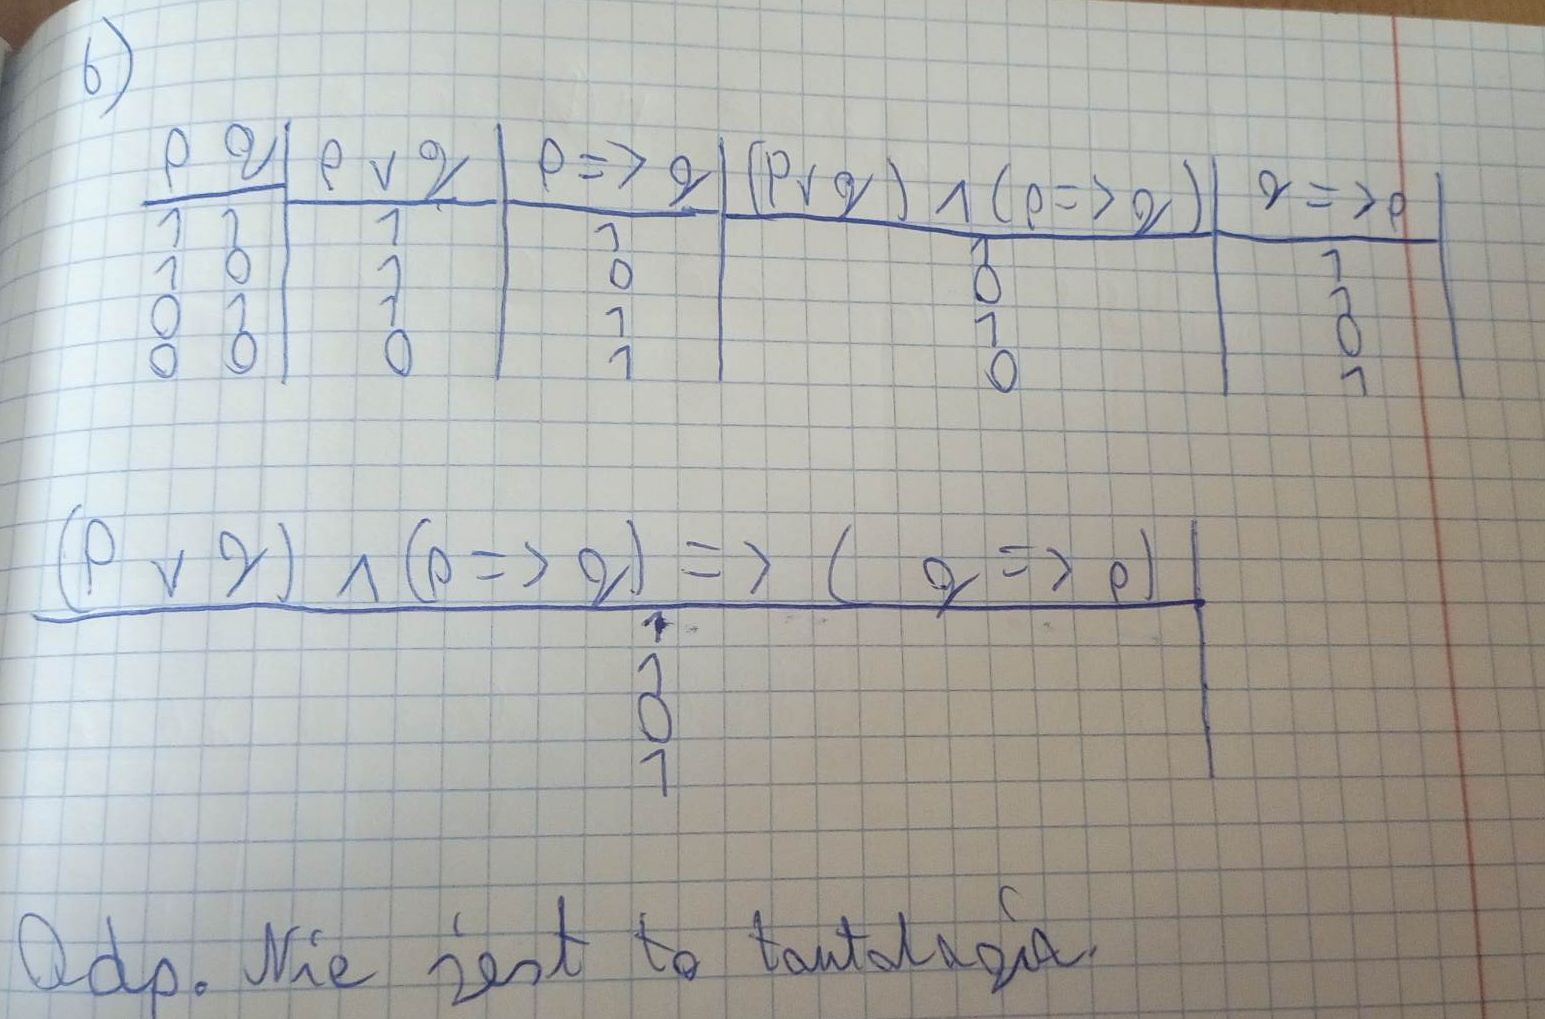 b)
p q | p ∨ q | p => q | (p ∨ q) ∧ (p => q) | q => p |
1 1 | 1 | 1 | 1 | 1
1 0 | 1 | 0 | 0 | 1
0 1 | 1 | 1 | 1 | 0
0 0 | 0 | 1 | 0 | 1
(p ∨ q) ∧ (p => q) => ( q => p) |
1
1
0
1
Odp. Nie jest to tautologia.